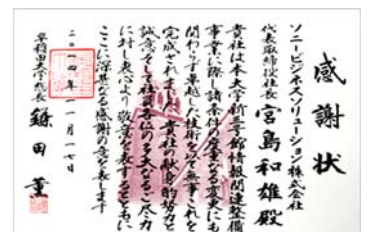 感謝状
ソニービジネスソリューション株式会社
代表取締役社長 宮島和雄殿
貴社は本大学新三号館情報関連整備
事業に際し諸条件の度重なる変更にも
関わらず卓越した技術を以て無事これを
完成されました 貴社の献身的努力と
誠意そして社員各位の多大なるご尽力
に対し衷心より敬意を表するとともに
ここに深甚なる感謝の意を表します
二〇一四年一一月一七日
早稲田大学総長 鎌田薫